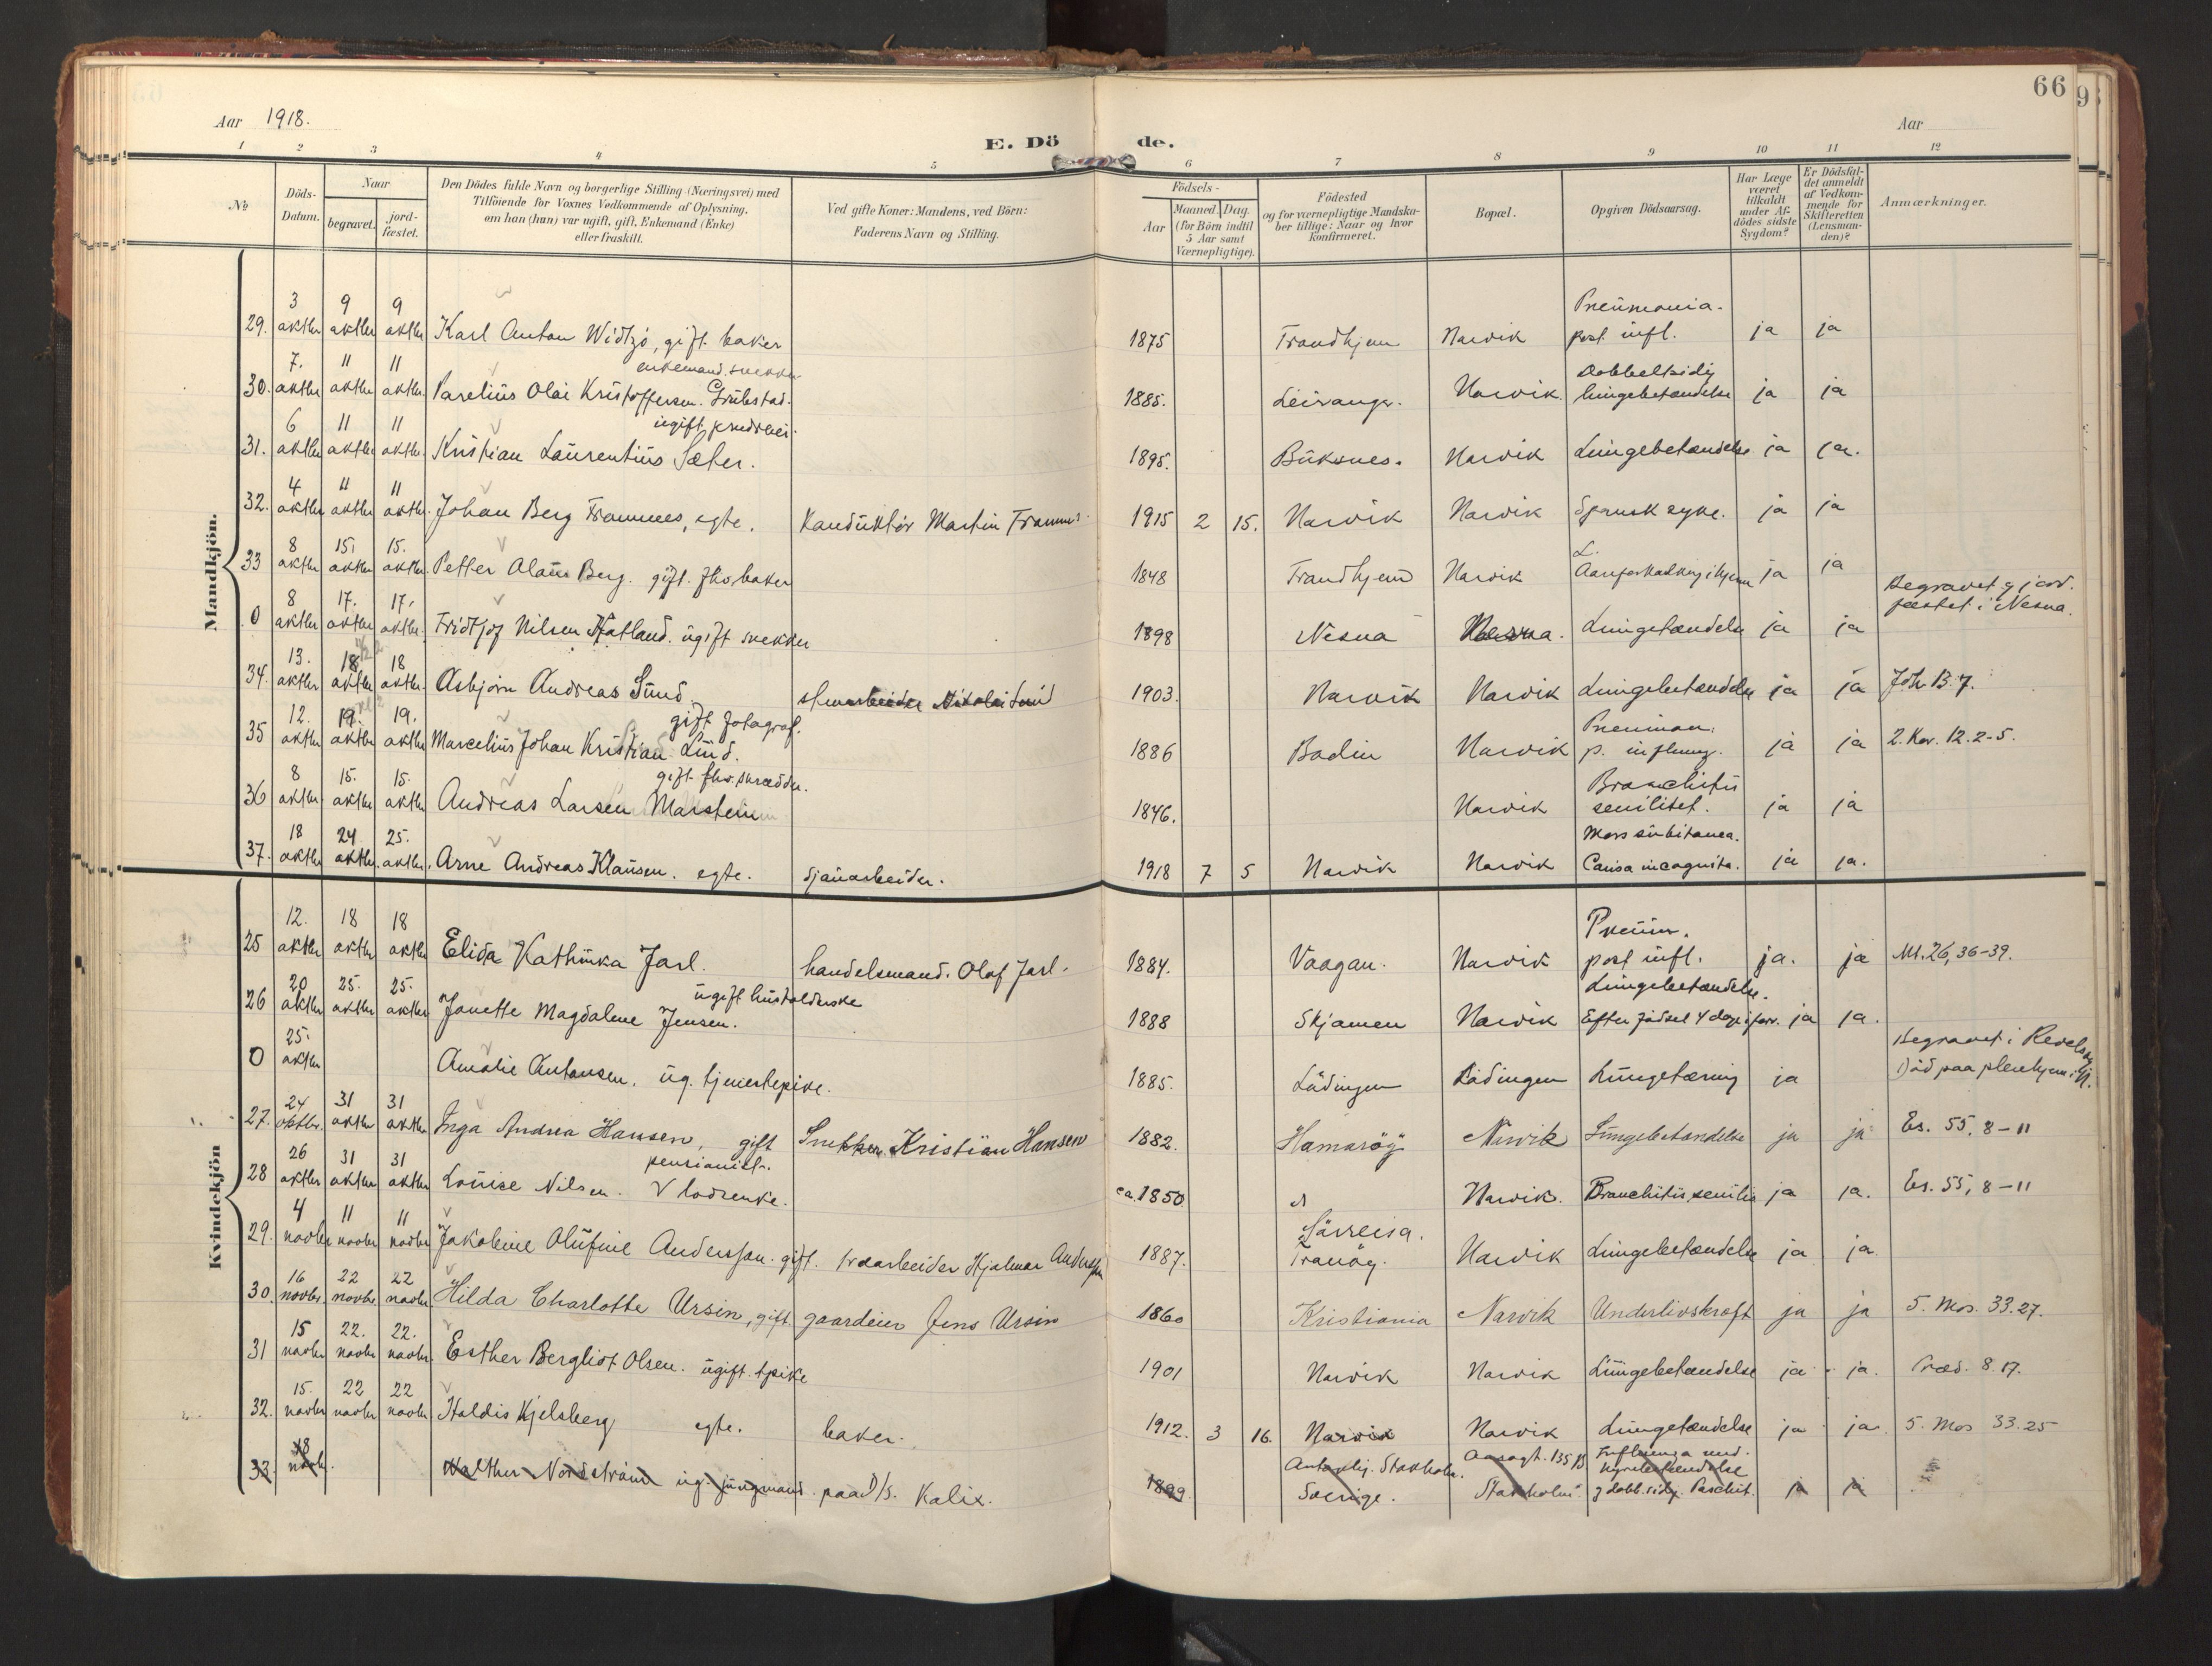 66
Aar 1918.
E. Dö de.
Aar
1 2 3 4 5 6 7 8 9 10 11 12
№
Döds-Datum.
Naar
begravet. jord-fæstet.
Den Dödes fulde Navn og borgerlige Stilling (Næringsvei) med
Tilföiende for Voxnes Vedkommende af Oplysning,
om han (hun) var ugift, gift, Enkemand (Enke)
eller fraskilt.
Ved gifte Koner: Mandens, ved Börn:
Faderens Navn og Stilling.
Födsels-
Aar
Maaned. Dag.
(for Börn indtil
5 Aar samt
Værnepligtige).
Födested
og for værnepligtige Mandska-
ber tillige: Naar og hvor
konfirmeret.
Bopæl.
Opgiven Dödsaarsag.
Har Læge
været
tilkaldt
under Af-
dödes sidste
Sygdom?
Er Dödsfal-
det anmeldt
af Vedkom-
mende for
Skifteretten
(Lensman-
den)?
Anmærkninger.
Mandkjön.
29. 3 oktbr 9 oktbr 9 oktbr Karl Anton Widtzö, gift baker 1875 Trondhjem Narvik Pneumonia. post infl. ja ja
30. 7. oktbr 11 oktbr 11 oktbr. Parelius Olai Kristoffersen Grubstad. enkemand. snekker 1885. Leiranger. Narvik. Dobbeltsidig lungebetændelse ja ja
31. 6 oktbr 11 oktbr 11 oktbr. Kristian Laurentius Sæter. ugift 1895. Buksnes. Narvik Lungebetændelse ja ja.
32. 4 oktbr 11 oktbr 11 oktbr. Johan Berg Tramnes, egte. Konduktör Martin Tramnes. 1915 2 15. Narvik Narvik Spansk syke. ja ja
33 8 oktbr 15. oktbr 15. oktbr. Petter Olaus Berg. gift. fhv. baker 1848 Trondhjem Narvik Aareforkalkning i hjernen ja ja
0 8 oktbr 17. oktbr 17. oktbr. Fridtjof Nilsen Hatland. ugift snekker 1898 Nesna Nesna. Lungetændelse ja ja Begravet og jord-fæstet i Nesna.
34. 13. oktbr 18 oktbr 18 oktbr. Asbjörn Andreas Sund. stenarbeider Nikolai Sund 1903. Narvik Narvik Lungebetændelse ja ja Joh. 13.7.
35 12. oktbr 19. oktbr 19. oktbr Marcelius Johan Kristian Lund. gift fotograf. 1886 Bodin Narvik Pneumon. p. influenz. ja ja 2. Kor. 12.2-5.
36 8 oktbr 15. oktbr 15. oktbr Andreas Larsen Marstein gift fhv. skrædder. 1846. Narvik Bronchitis senilitet. ja ja
37. 18 oktbr 24 oktbr. 25. oktbr. Arne Andreas Klausen. egte. sjauarbeider. 1918 7 5 Narvik Narvik Mors subitanea. Causa incognita. ja ja.
Kvindekjön
25 12. oktbr 18 oktbr 18 oktbr Elida Kathinka Jarl. handelsmand. Olaf Jarl. 1884. Vaagan. Narvik Pneum. post infl. ja. ja Mt. 26, 36-39.
26 20 oktbr 25. oktbr 25. oktbr Janette Magdalene Jensen. ugift husholderske 1888 Skjomen Narvik Lungebetændelse. Efter födsel 4 dage forv. ja ja.
0 25. oktbr Amalie Antonsen. ug. tjenestepike. 1885. Lödingen Lödingen Lungetæring ja Begravet i
Död paa pleiehjem i N.
27. 24 oktbr. 31 oktbr 31 oktbr Inga Andrea Hansen, gift Snekker. Kristian Hansen 1882. Hamaröy Narvik Lungebetændelse ja ja Es. 55, 8-11
28 26 oktbr 31 oktbr 31 oktbr Lovise Nilsen. pensionist. lodsenke. ca. 1850 Narvik. Bronchitis, senilis ja ja. Es. 55, 8-11
29. 4 novbr 11 novbr 11 novbr Jakobine Olufine Anderssen. gift. traarbeider Hjalmar Anderssen 1887. Sörreisa. Tranöy. Narvik Lungebetændelse ja ja
30. 16 novbr. 22 novbr. 22 novbr. Hilda Charlotte Ursin, gift gaardeier Jens Ursin 1860 Kristiania Narvik Underlivskræft ja ja 5. Mos. 33.27.
31 15 novbr 22. novbr 22. novbr. Esther Bergliot Olsen. ugift. tpike 1901 Narvik Narvik Lungebetændelse ja ja. Præd. 8.17.
32. 15. novbr 22 novbr 22 novbr Haldis Kjelsberg egte. baker. 1912. 3 16. Narvik Narvik Lungetændelse ja ja 5. Mos 33.25
33. 18 novb. Walther Nordström ug. jungmand. paa D/S. Kalix. 1899 Antagelig. Stockholm. Sverige. Stockholm. Influenza med. og dobb.sidig. ja ja